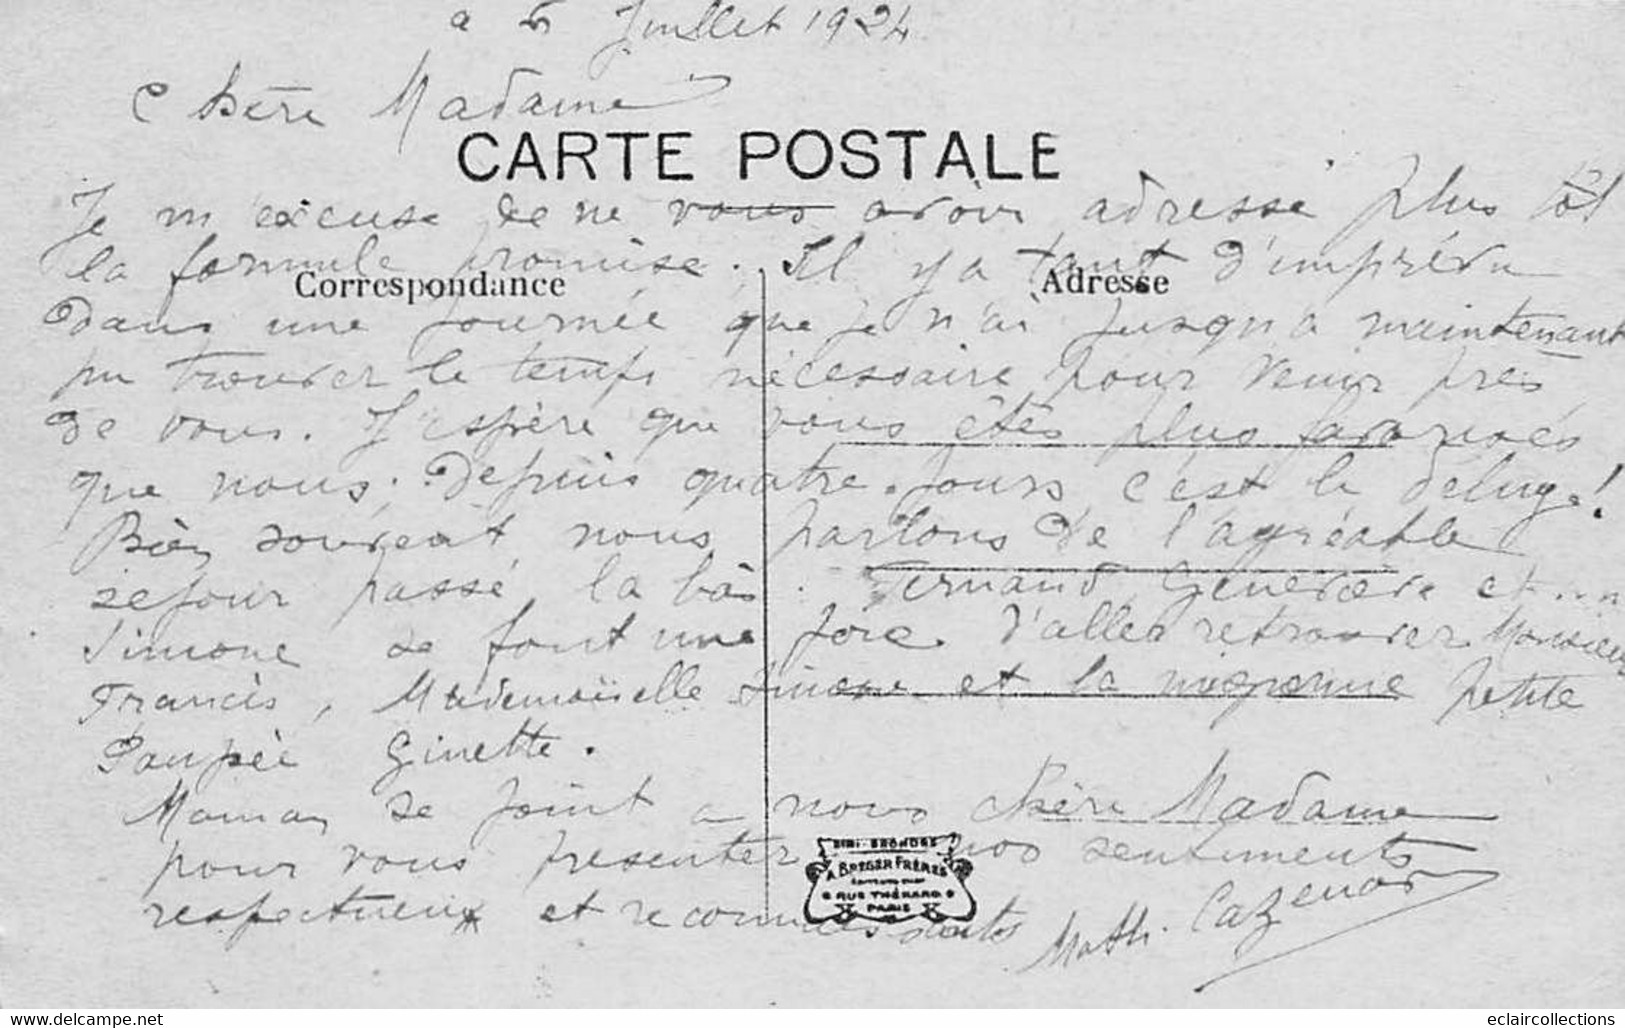 Juillet 1924
Chère Madame
CARTE POSTALE
Je m'excuse de ne vous avoir adressé plus tôt
la formule promise. Il y a tant d'imprévu
Correspondance
Adresse
dans une journée que je n'ai jusqu'a maintenant
pu trouver le temps nécessaire pour venir près
de vous. J'espère que vous êtes plus favorisés
que nous; Depuis quatre jours c'est le déluge!
Bien souvent nous parlons de l'agréable
séjour passé la bàs. Fernand Geneviève et
Simone se font une joie d'aller retrouver Monsieur
Francis, Mademoiselle Simone et la mignonne petite
Poupée Ginette.
Maman se joint a nous chère Madame
pour vous présenter nos sentiments
BREGER FRÈRES
RUE THÉNARD 9
PARIS
respectueux et reconnaissants
Math. Cazenar
eclaircollections
https://www.delcampe.net